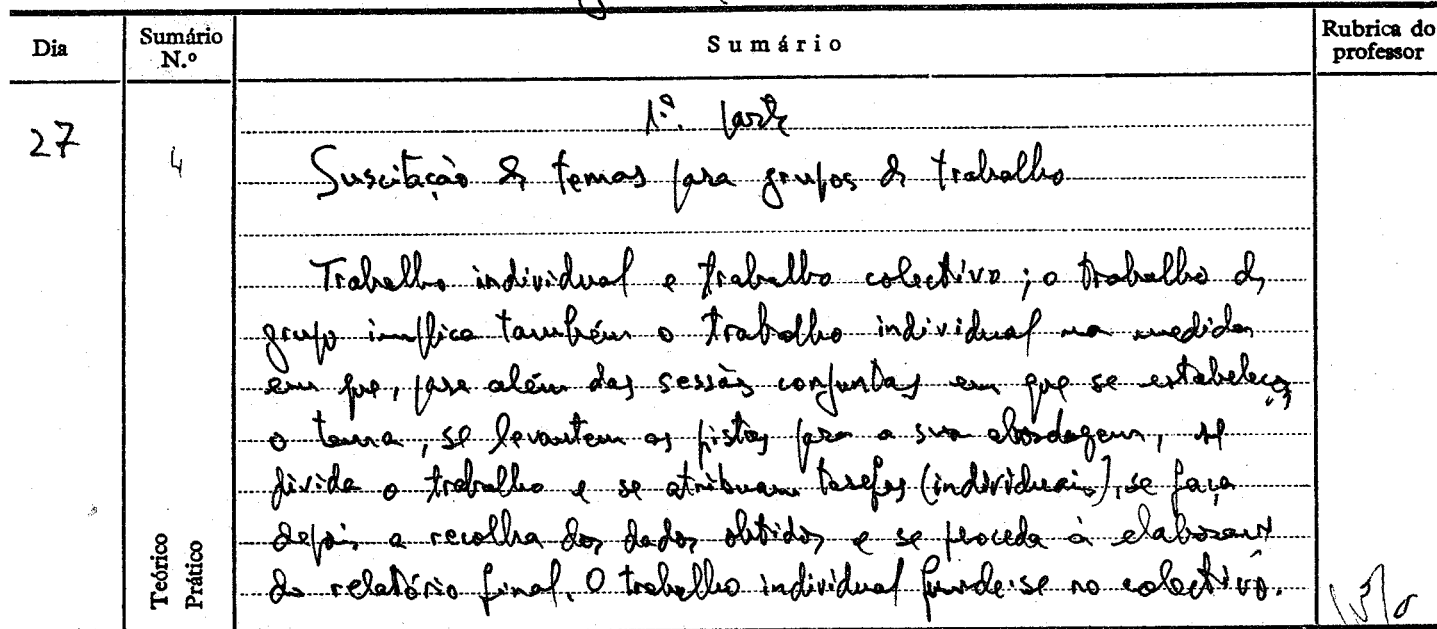 Dia
Sumário N.º
Sumário
Rubrica do professor
27
4
1.ª parte
Suscitação de temas para grupos de trabalho
Trabalho individual e trabalho colectivo; o trabalho de
grupo implica também o trabalho individual na medida
em que, para além das sessões conjuntas em que se estabeleça
o tema, se levantem as pistas para a sua abordagem, se
divida o trabalho e se atribuam tarefas (individuais), se faça
depois a recolha dos dados obtidos e se proceda à elaboração
do relatório final. O trabalho individual funde-se no colectivo.
Teórico
Prático